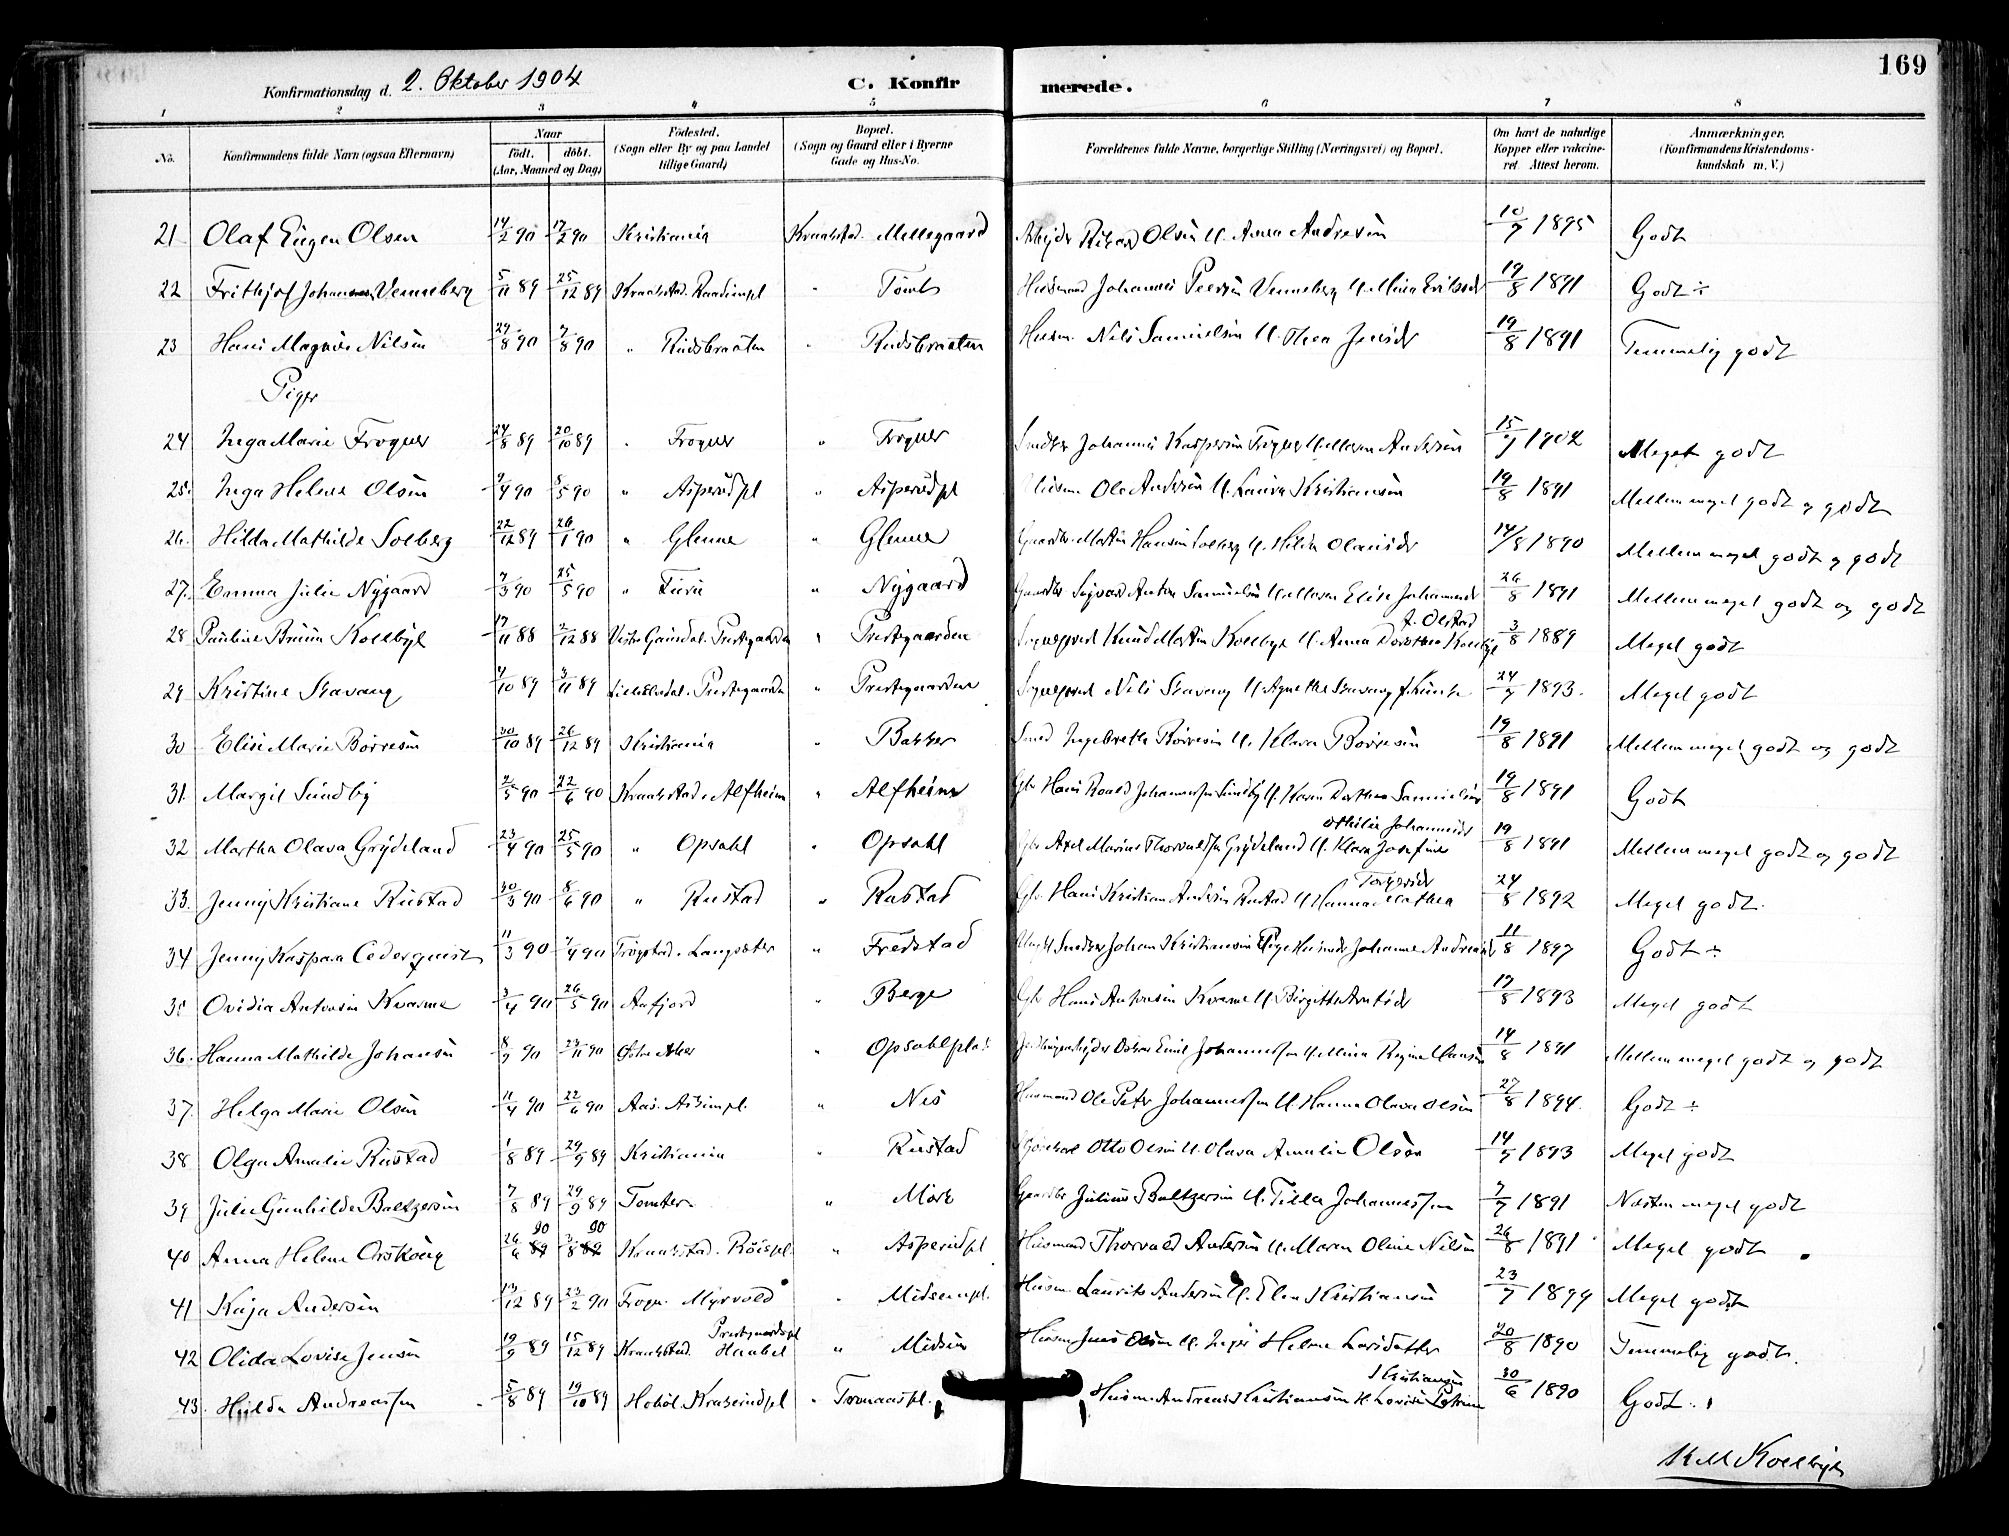 169
Konfirmationsdag d. 2. Oktober 1904 C. Konfirmerede.
1 2 3 4 5 6 7 8
No. Konfirmandens fulde Navn (ogsaa Efternavn) Naar Født. døbt. (Aar, Maaned og Dag) Fødested. (Sogn eller By og paa Landet tillige Gaard) Bopæl. (Sogn og Gaard eller i Byerne Gade og Hus-No. Forældrenes fulde Navne, borgerlige Stilling (Næringsvei) og Bopæl. Om havt de naturlige Kopper eller vaccineret. Attest herom. Anmærkninger. (Konfirmandens Kristendomskundskab m. V.)
21 Olaf Eugen Olsen 14/2 90 17/2 90 Kristiania Kraakstad. Mellegaard Arbeider Rikard Olsen & Anna Andresen 10/7 1895 Godt
22 Frithjof Johannes Venneberg 5/11 89 25/12 89 Kraakstad. " Tomb Husmand Johannes Venneberg & 19/8 1891 Godt ÷
23 Hans Magnus Nilsen 90 90 " Rudsbraaten " Rudsbraaten Husm. Nils Samuelsen & Thea 19/8 1891 Temmelig godt
Piger
24 Inga Marie Frogner 24/8 89 20/10 89 " Frogner " Frogner Snedker Johannes Kaspersen Frogner & Maren Andersen 15/7 1902 Meget godt
25. Inga Helene Olsen 4 90 5 90 " Asperudpl " Asperudpl Husm Ole Andersen & Laura Kristiansen 19/8 1891 Mellem meget godt og godt
26. Hilda Mathilde Solberg 22/12 89 26/1 90 " Glenne " Glenne Gaardbr. Martin Hansen Solberg & Hilda Olausdr 14/8 1890 Mellem meget godt og godt
27. Emma Julie Nygaard 7/3 90 25/5 90 " Furu " Nygaard Gaardbr Sigvard Anton Samuelsen & Maren Elise Johannesdr 26/8 1891 Mellem meget godt og godt
28 Pauline Bruun Kolbye 17/11 88 2/12 88 Vestre Gausdal. Prestegaarden " Prestegaarden Sogneprest Knud Martin Kolbye & Anna Dorothea Kolbye f. Olstad 3/8 1889 Meget godt
29 Kristine Stavang 10 89 3/11 89 Prestegaarden " Prestegaarden Sogneprest Nils Stavang & Agnethe Stavang 24/7 1893. Meget godt
30 Elise Marie Børresen 30/10 89 26/12 89 Kristiania " Bakker Smed Ingebreth Børresen & Klara Børresen 19/8 1891 Mellem meget godt og godt
31. Margit Sundby 2/5 90 22/6 90 Kraakstad. Alfheim " Alfheim Gbr Hans Roald Johannessen Sundby & Karen Dorthea Samuelsen 19/8 1891 Godt
32 Martha Olava Grydeland 23/4 90 25/5 90 " Opsahl " Opsahl Gbr Axel Marius Thorvaldsen Grydeland & Klara Josefine Othilie Johannesdr 19/8 1891 Mellem meget godt og godt
33. Jenny Kristiane Rustad 30/3 90 8/6 90 " Rustad " Rustad Gbr. Hans Kristian Andersen Rustad & Hanna Mathea Torgersdr 24/8 1892 Meget godt.
34 Jenny Kaspara Cederquist 11/3 90 7/4 90 Trøgstad. Langsæter " Fredstad Ungk. Snedker Johan Kristiansen Pige Johanne 11/8 1897 Godt ÷
35 Ovidia Antonsen Kvarme 3/4 90 26/5 90 Aafjord " Berge Gbr Hans Antonsen Kvarme & Birgitte 17/8 1893 Meget godt
36. Hanna Mathilde Johansen 8/9 90 23/11 90 Østre Aker " Opsahlplads Oskar Emil Johannessen & Mina Regine Hansen 14/8 1891 Mellem meget godt og godt
37. Helga Marie Olsen 11/4 90 22/6 90 Aas. " Nes Husmand Ole Peter Johannessen & Hanna Olava Olsen 27/8 1894. Godt ÷
38 Olga Amalie Rustad 1/8 89 29/9 89 Kristiania " Rustad Otto Olsen & Olava Amalie Olsen 14/5 1893 Meget godt
39 Julie Gunhilde Baltzersen 7/8 89 29/9 89 Tomter " Mork Gaardbr Julius Baltzersen & Tilla Johannessen 7/7 1891 Næsten meget godt
40 Anna Helene Orskoug 26/6 89 90 3/8 89 90 Kraakstad. " Asperudpl Husmand Thorvald Andersen & Maren Oline Nilsen 26/8 1891 Meget godt
41 Kaja Andersen 13/12 89 23/2 90 Frogn. Myrvold " Midsempl. Husm. Laurits Andersen & Elen Kristiansen 23/7 1899 Meget godt
42 Olida Lovise Jensen 19/9 89 15/12 89 Kraakstad. Prestegaardspl Haukel " Midsem Husm Jens Olsen & Helene Larsdatter 20/8 1890 Temmelig godt.
43. Hulda Andreassen 5/8 89 19/10 89 Hobøl. " Tomaaspl. Husm. Andreas Kristiansen & Lovise Petrine Kristiansen 30/6 1890 Godt.
K M Kolbye